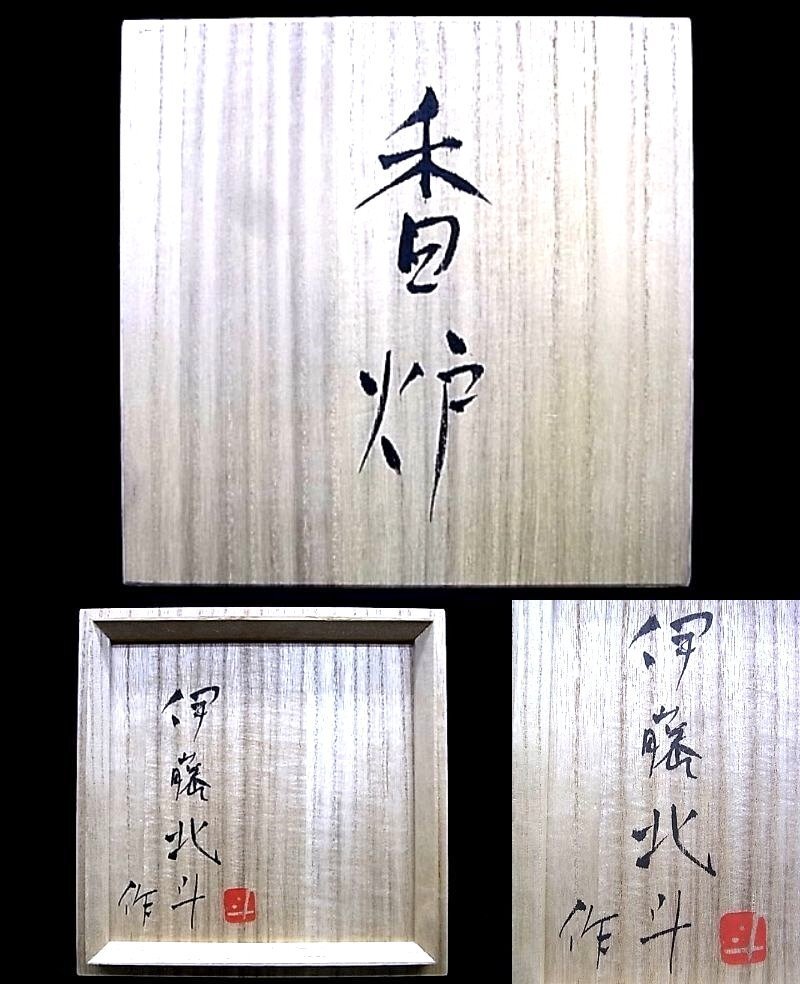 香炉
伊藤北斗
作
斗
伊藤北斗
作
斗